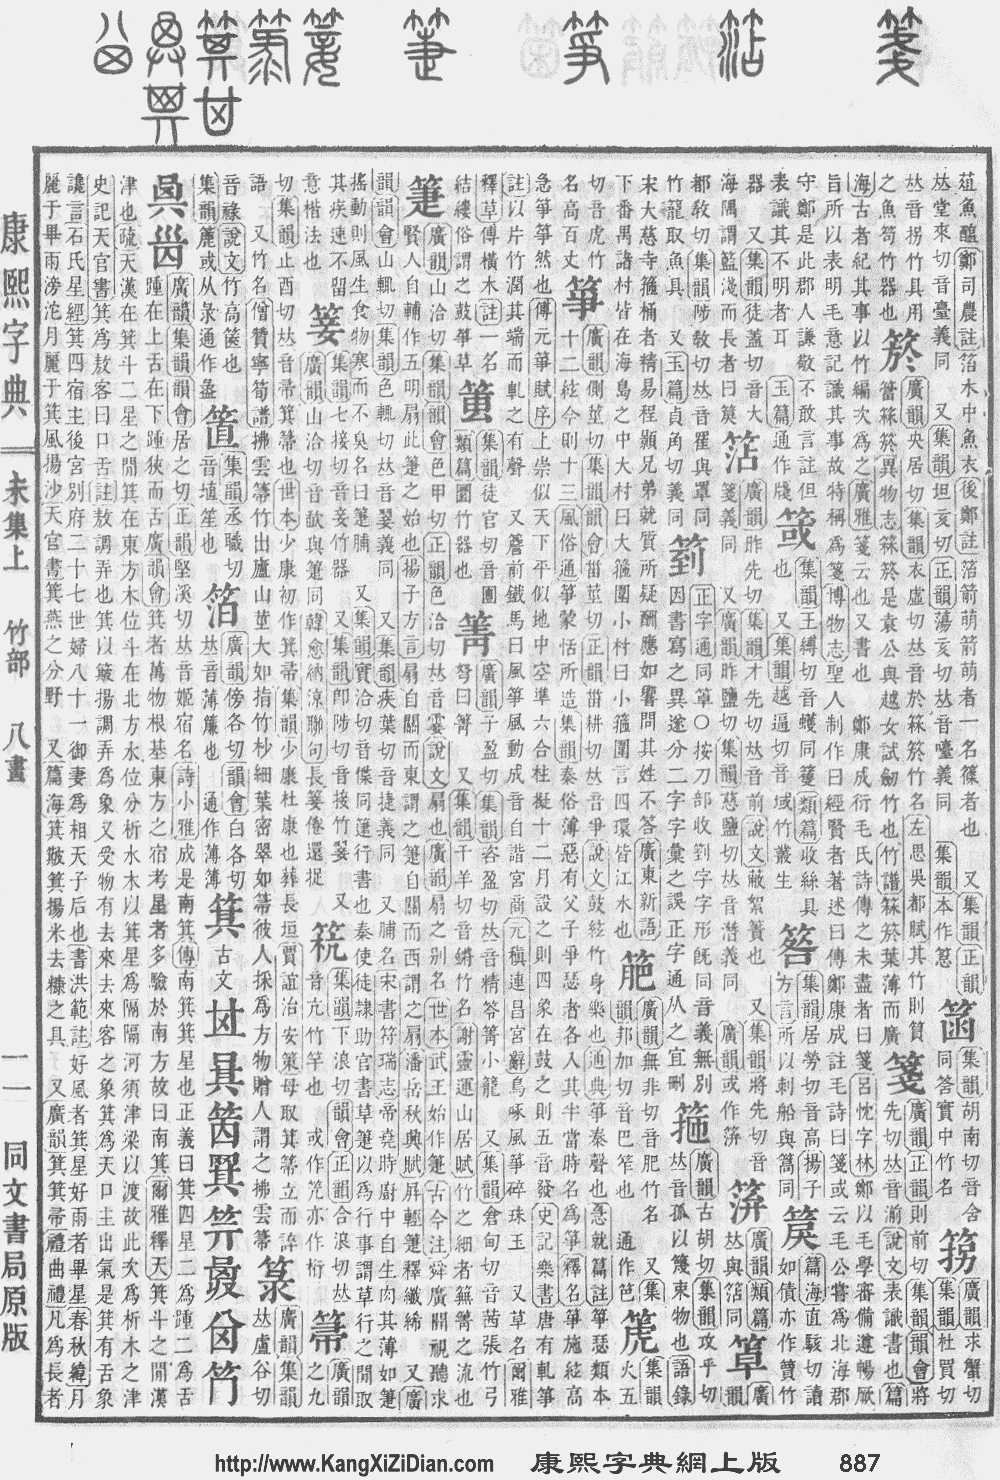 康熙字典 未集上 竹部 八畫 一一 同文書局原版
菹魚醢鄭司農註箈水中魚衣後鄭註箈箭萌箭萌者一名篠者也 又集韻正韻
𠀤堂來切音臺義同 又集韻坦亥切正韻蕩亥切𠀤音嚏義同 集韻本作
集韻胡南切音含
同答實中竹名
箉 廣韻求蟹切
集韻杜買切
𠀤音拐竹具用
之魚笱竹器也
箊 廣韻央居切集韻衣虛切𠀤音於箖箊竹名左思吳都賦其竹則篔
簹箖箊異物志箖箊是袁公與越女試劒竹也竹譜箖箊葉薄而廣
箋 廣韻正韻則前切集韻韻會將
先切𠀤音湔說文表識書也篇
海古者紀其事以竹編次爲之廣雅箋云也又書也 鄭康成衍毛氏詩傳之未盡者曰箋呂忱字林鄭以毛學審備遵暢厥
旨所以表明毛意記識其事故特稱爲箋博物志聖人制作曰經賢者著述曰傳鄭康成註毛詩曰箋或云毛公嘗爲北海郡
守鄭是此郡人謙敬不敢言註但
表識其不明者耳 玉篇通作牋
集韻王縛切音蠖同篗類篇收絲具
也 又集韻越逼切音域竹叢生
筶 集韻居勞切音高揚子
方言所以刺船與篙同
篇海直駭切讀
如債亦作 竹
器 又集韻徒蓋切音大
海隅謂籃淺而長者曰
廣韻昨先切集韻才先切𠀤音前說文蔽絮簀也 又集韻將先切音
箋義同 又廣韻昨鹽切集韻慈鹽切𠀤音潛義同 廣韻或作
廣韻類篇
𠀤與 同
廣
韻
都敎切集韻陟敎切𠀤音罩與罩同
竹籠取魚具 又玉篇貞角切義同
箌 正字通同 ○按刀部收 字字形旣同音義無別
因書寫之異遂分二字字彙之誤正字通从之宜刪
箍 廣韻古胡切集韻攻乎切
𠀤音孤以篾束物也語錄
宋大慈寺箍桶者精易程顥兄弟就質所疑酬應如響問其姓不答廣東新語
下番禺諸村皆在海島之中大村曰大箍圍小村曰小箍圍言四環皆江水也
䈈 廣韻無非切音肥竹名 又集
韻邦加切音巴笮也 通作笆
箎 集韻
火五
切音虎竹
名高百丈
箏 廣韻側莖切集韻韻會甾莖切正韻甾耕切𠀤音爭說文鼓絃竹身樂也通典箏秦聲也急就篇註箏瑟類本
十二絃今則十三風俗通箏蒙恬所造集韻秦俗薄惡有父子爭瑟者各入其半當時名爲箏釋名箏施絃高
急箏箏然也傅元箏賦序上崇似天下平似地中空準六合柱擬十二月設之則四象在鼓之則五音發史記樂書唐有軋箏
註以片竹潤其端而軋之有聲 又簷前鐵馬曰風箏風動成音自諧宮商元稹連昌宮辭鳥啄風箏碎珠玉 又草名爾雅
釋草傅橫木註一名
結縷俗謂之鼓箏草
集韻徒官切音團
類篇圜竹器也
箐 廣韻子盈切集韻咨盈切𠀤音精笭箐小籠 又集韻倉甸切音茜張竹弓
弩曰箐 又集韻千羊切音鏘竹名謝靈運山居賦竹之細者無箐之流也
箑 廣韻山洽切集韻韻會色甲切正韻色洽切𠀤音霎說文扇也廣韻扇之別名世本武王始作箑古今注舜廣開視聽求
賢人自輔作五明扇此箑之始也揚子方言扇自關而東謂之箑自關而西謂之扇潘岳秋興賦屏輕箑釋纖絺 又廣
韻韻會山輒切集韻色輒切𠀤音翣義同 又集韻疾葉切音捷義同 又脯名宋書符瑞志帝堯時廚中自生肉其薄如箑
搖動則風生食物寒而不臭名曰箑脯 又集韻實洽切音 同箑行書也秦使徒隷助官書草箑以爲行事謂草行之閒取
其疾速不留
意楷法也
䈉 集韻七接切音妾竹器 又集韻卽陟切音接竹翣 又
廣韻山洽切音歃與箑同韓愈納涼聯句長䈉倦還捉
集韻下浪切韻會正韻合浪切𠀤
音亢竹竿也 或作 亦作桁
箒 廣韻
之九
切集韻止酉切𠀤音帚箕箒也世本少康初作箕帚集韻少康杜康也葬長垣賈誼治安策母取箕箒立而誶
語 又竹名僧贊寧筍譜拂雲箒竹出廬山莖大如指竹杪細葉密翠如箒彼人採爲方物贈人謂之拂雲箒
箓 廣韻集韻
𠀤盧谷切
音祿說文竹高篋也
集韻簏或从彔通作盝
集韻丞職切
音埴笙也
箔 廣韻傍各切韻會白各切
𠀤音薄簾也 通作薄簿
箕 古文
廣韻集韻韻會居之切正韻堅溪切𠀤音姬宿名詩小雅成是南箕傳南箕箕星也正義曰箕四星二爲踵二爲舌
踵在上舌在下踵狹而舌廣韻會箕者萬物根基東方之宿考星者多驗於南方故曰南箕爾雅釋天箕斗之閒漢
津也疏天漢在箕斗二星之閒箕在東方木位斗在北方水位分析水木以箕星爲隔隔河須津梁以渡故此次爲析木之津
史記天官書箕爲敖客曰口舌註敖調弄也箕以簸揚調弄爲象又受物有去來去來客之象箕爲天口主出氣是箕有舌象
讒言石氏星經箕四宿主後宮別府二十七世婦八十一御妻爲相天子后也書洪範註好風者箕星好雨者畢星春秋緯月
麗于畢雨滂沱月麗于箕風揚沙天官書箕燕之分野 又篇海箕簸箕揚米去糠之具 又廣韻箕箕帚禮曲禮凡爲長者
http://www.KangXiZiDian.com 康熙字典網上版 887